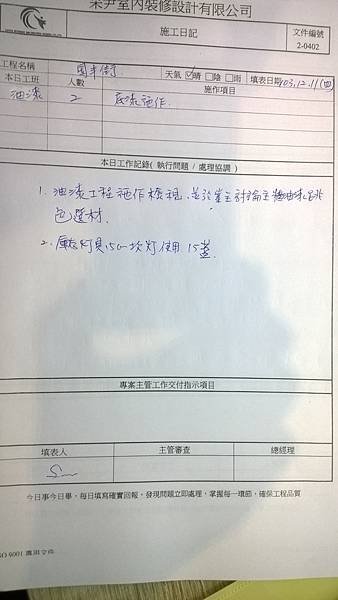 采尹室內裝修設計有限公司
施工日記
文件編號
2-0402
工程名稱
天氣 ☑晴 □陰 □雨 填表日期 103.12.11(四)
本日工班 人數 施作項目
油漆 2 底漆施作.
本日工作記錄( 執行問題 / 處理協調 )
1. 油漆工程施作檢視, 並於業主討論主牆油漆跳
色選材.
2. 燈具15cm崁灯使用 15盞.
專案主管工作交付指示項目
填表人 主管審查 總經理
今日事今日畢，每日填寫確實回報，發現問題立即處理，掌握每一環節，確保工程品質
ISO 9001 應用文件